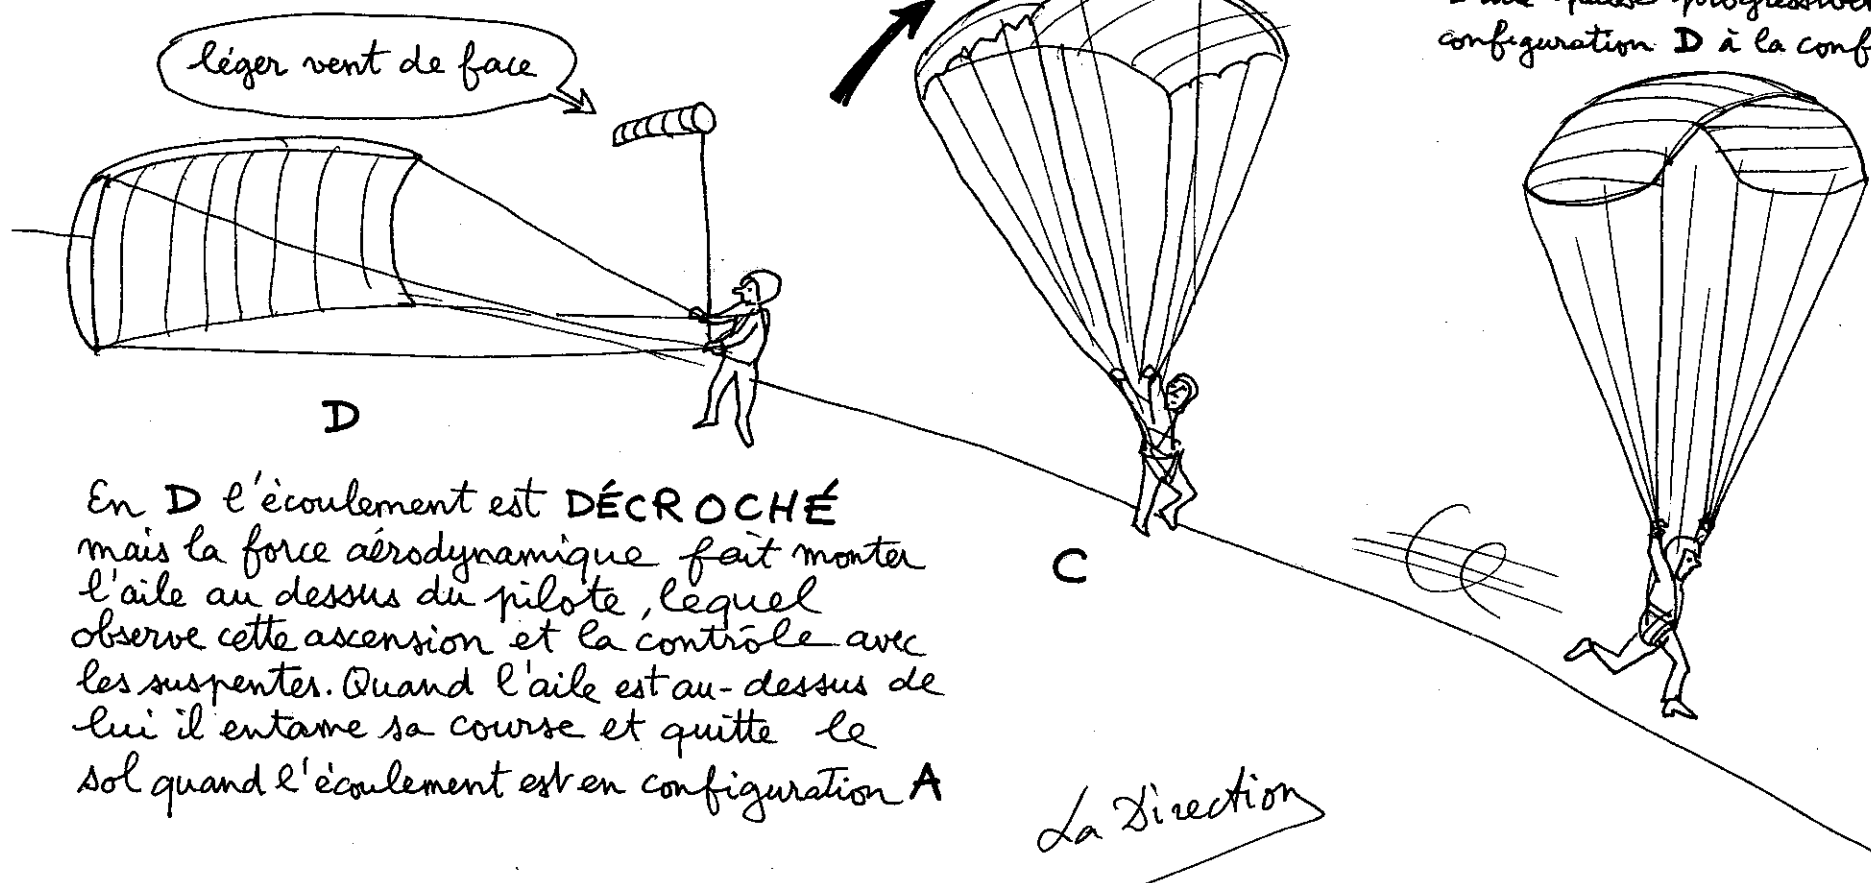 léger vent de face
progressivem
configuration D à la conf
D
C
En D l'écoulement est DÉCROCHÉ
mais la force aérodynamique fait monter
l'aile au dessus du pilote, lequel
observe cette ascension et la contrôle avec
les suspentes. Quand l'aile est au-dessus de
lui il entame sa course et quitte le
sol quand l'écoulement est en configuration A
La Direction